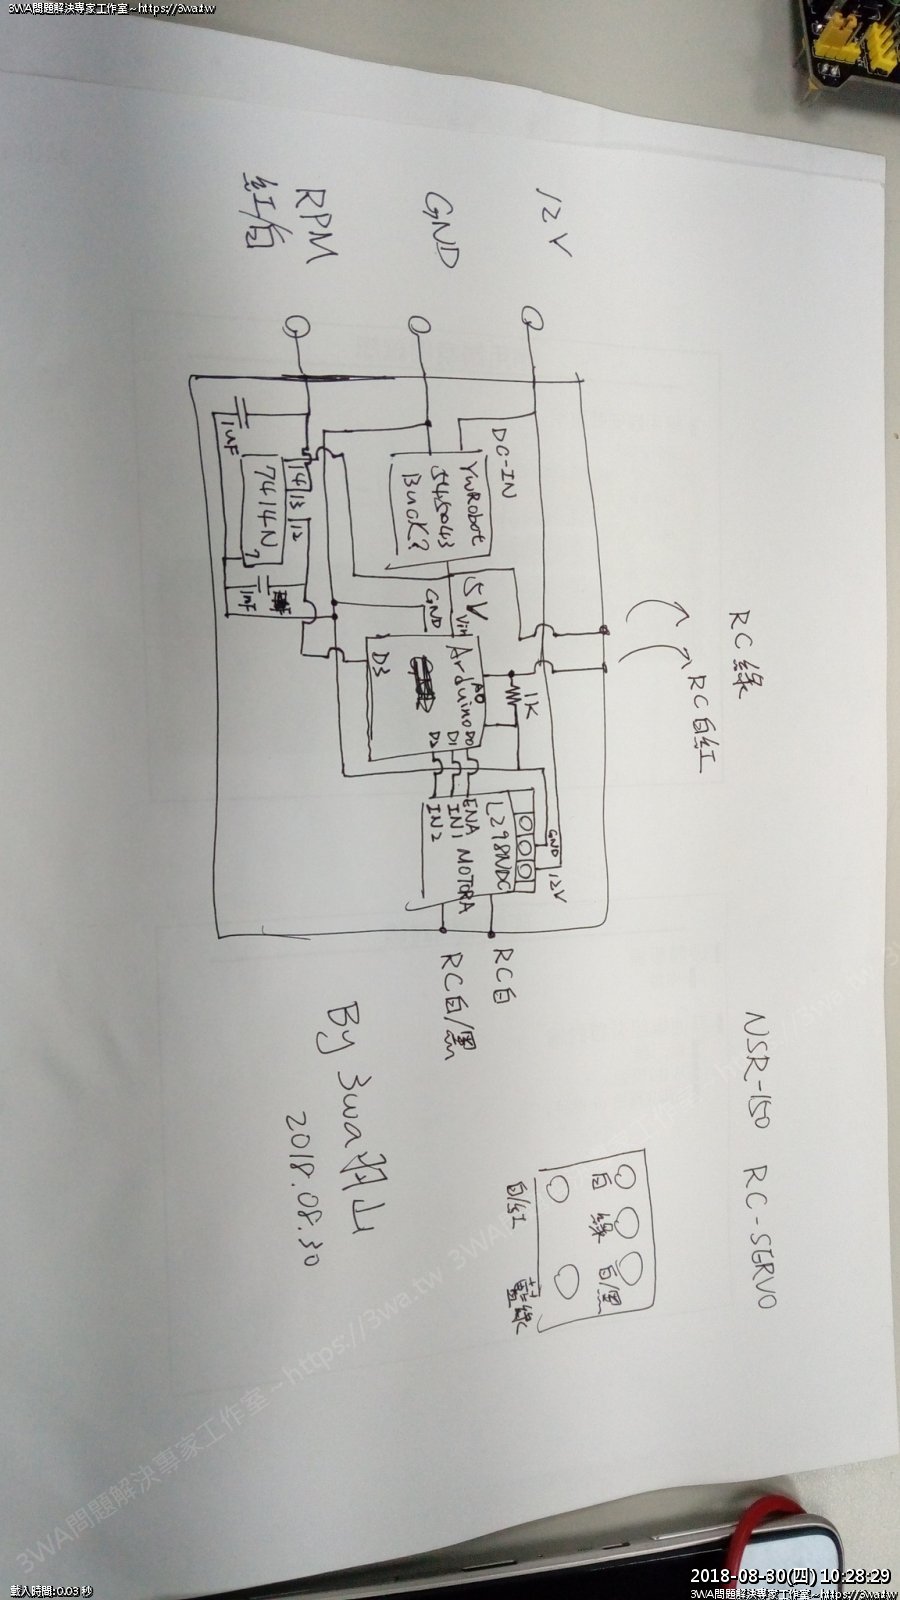 3WA問題解決專家工作室~https://3wa.tw
12V
GND
RPM
紅/白
DC-IN
YwRobot
545043
Buck?
1uF
14 13 12
7414N
7
1nF
5V
GND
Vin
Arduino
A0
D3
D0
D1
D2
1K
RC綠
RC白紅
ENA
IN1
IN2
L298NDC
MOTORA
GND
12V
RC白
RC白/黑
NSR-150 RC-SERVO
白 綠 白/黑
白/紅 藍綠
By 3wa羽山
2018.08.30
3WA問題解決專家工作室~https://3wa.tw
載入時間:0.03 秒
2018-08-30(四) 10:28:29
3WA問題解決專家工作室~https://3wa.tw